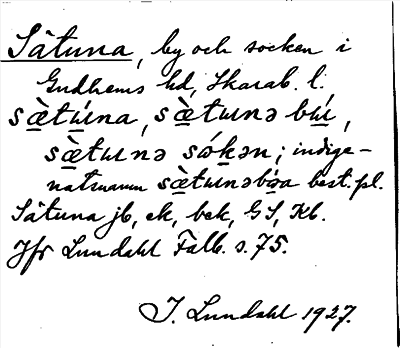 Sätuna, by och socken i
Gudhems hd, Skarab. l.
sæ̀tu̇na, sæ̀tunə bú,
sæ̀tunə sókən; indige-
natnamn sæ̀tunəbóa best. pl.
Sätuna jb, ek, bek, GS, Kb.
Jfr Lundahl Falb. s. 75.
I. Lundahl 1927.